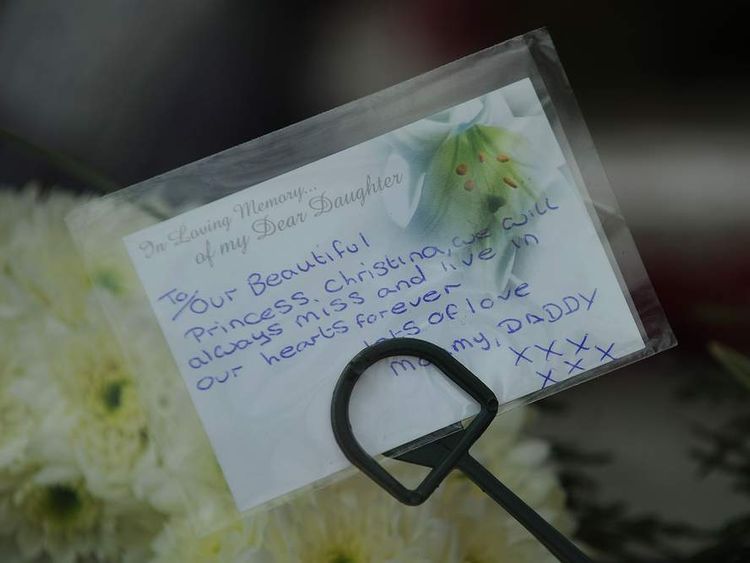 In Loving Memory...
of my Dear Daughter
To/Our Beautiful
Princess, Christina, we will
always miss and live in
our hearts forever
lots of love
Mommy, DADDY
xxxx
xxx